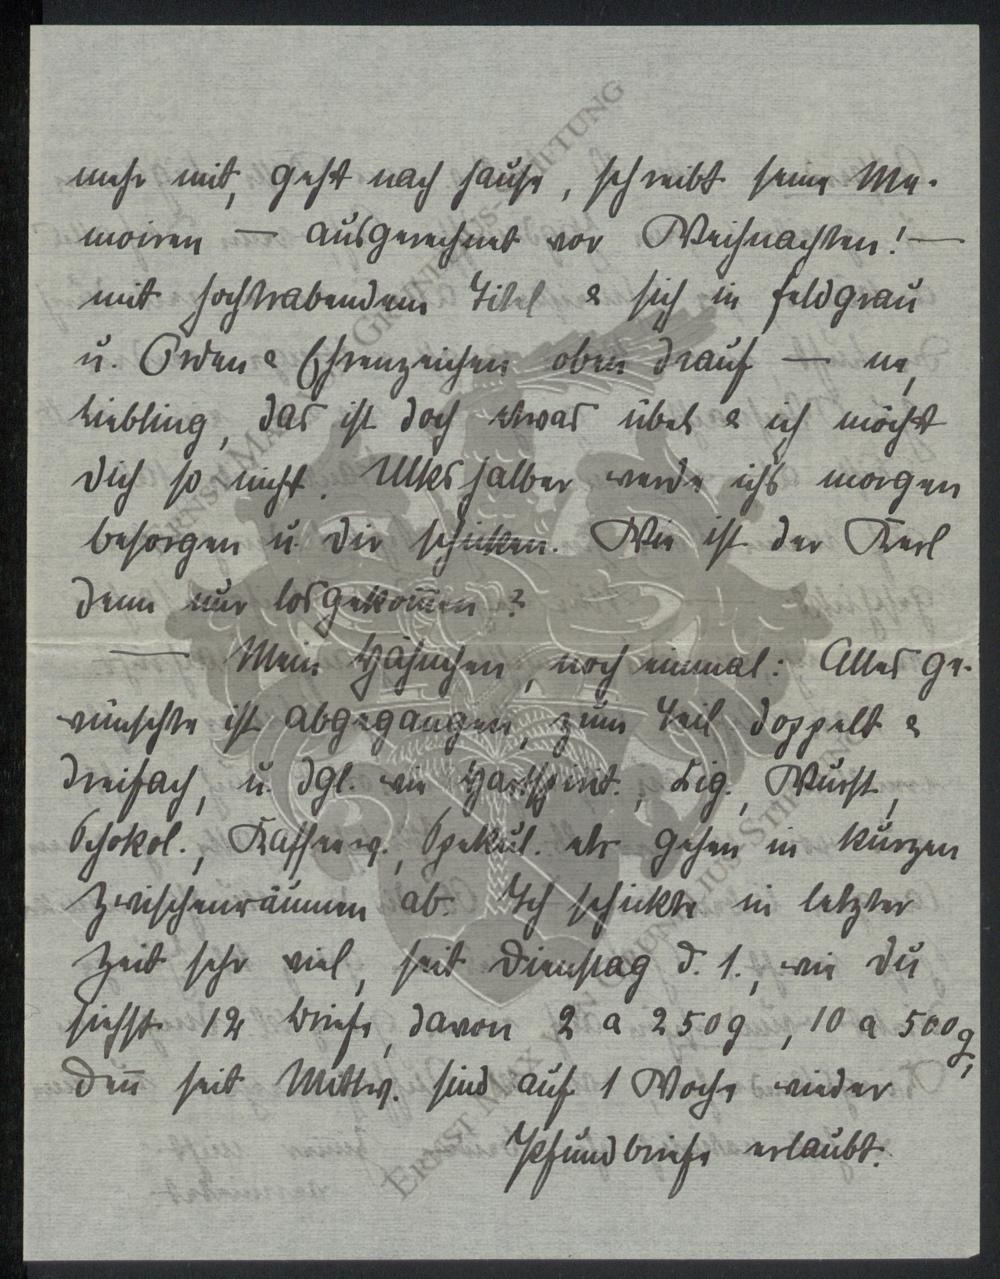 mehr mit, geht nach Hause, schreibt seine Me-
moiren — ausgerechnet vor Weihnachten! —
mit hochtrabendem Titel & sich in feldgrau
u. Orden & Ehrenzeichen oben drauf — ne,
Liebling, das ist doch etwas übel & ich möcht
dich so nicht. Ulkshalber werde ichs morgen
besorgen u. dir schicken. Wie ist der Kerl
denn nur losgekom̅en?
— Mein Hähnchen, noch einmal: Alles ge-
wünschte ist abgegangen, zum Teil doppelt &
dreifach, u. dgl. wie Hartspirit., Zig., Wurst,
Schokol., Kaffeew., Spekul. etc gehen in kurzen
Zwischenräumen ab. Ich schickte in letzter
Zeit sehr viel, seit Dienstag d. 1., wie du
siehst 12 Briefe, davon 2 a 250g, 10 a 500g,
den̅ seit Mittw. sind auf 1 Woche wieder
Pfundbriefe erlaubt.
ERNST MAX VON GRUNELIUS-STIFTUNG
ERNST MAX VON GRUNELIUS-STIFTUNG